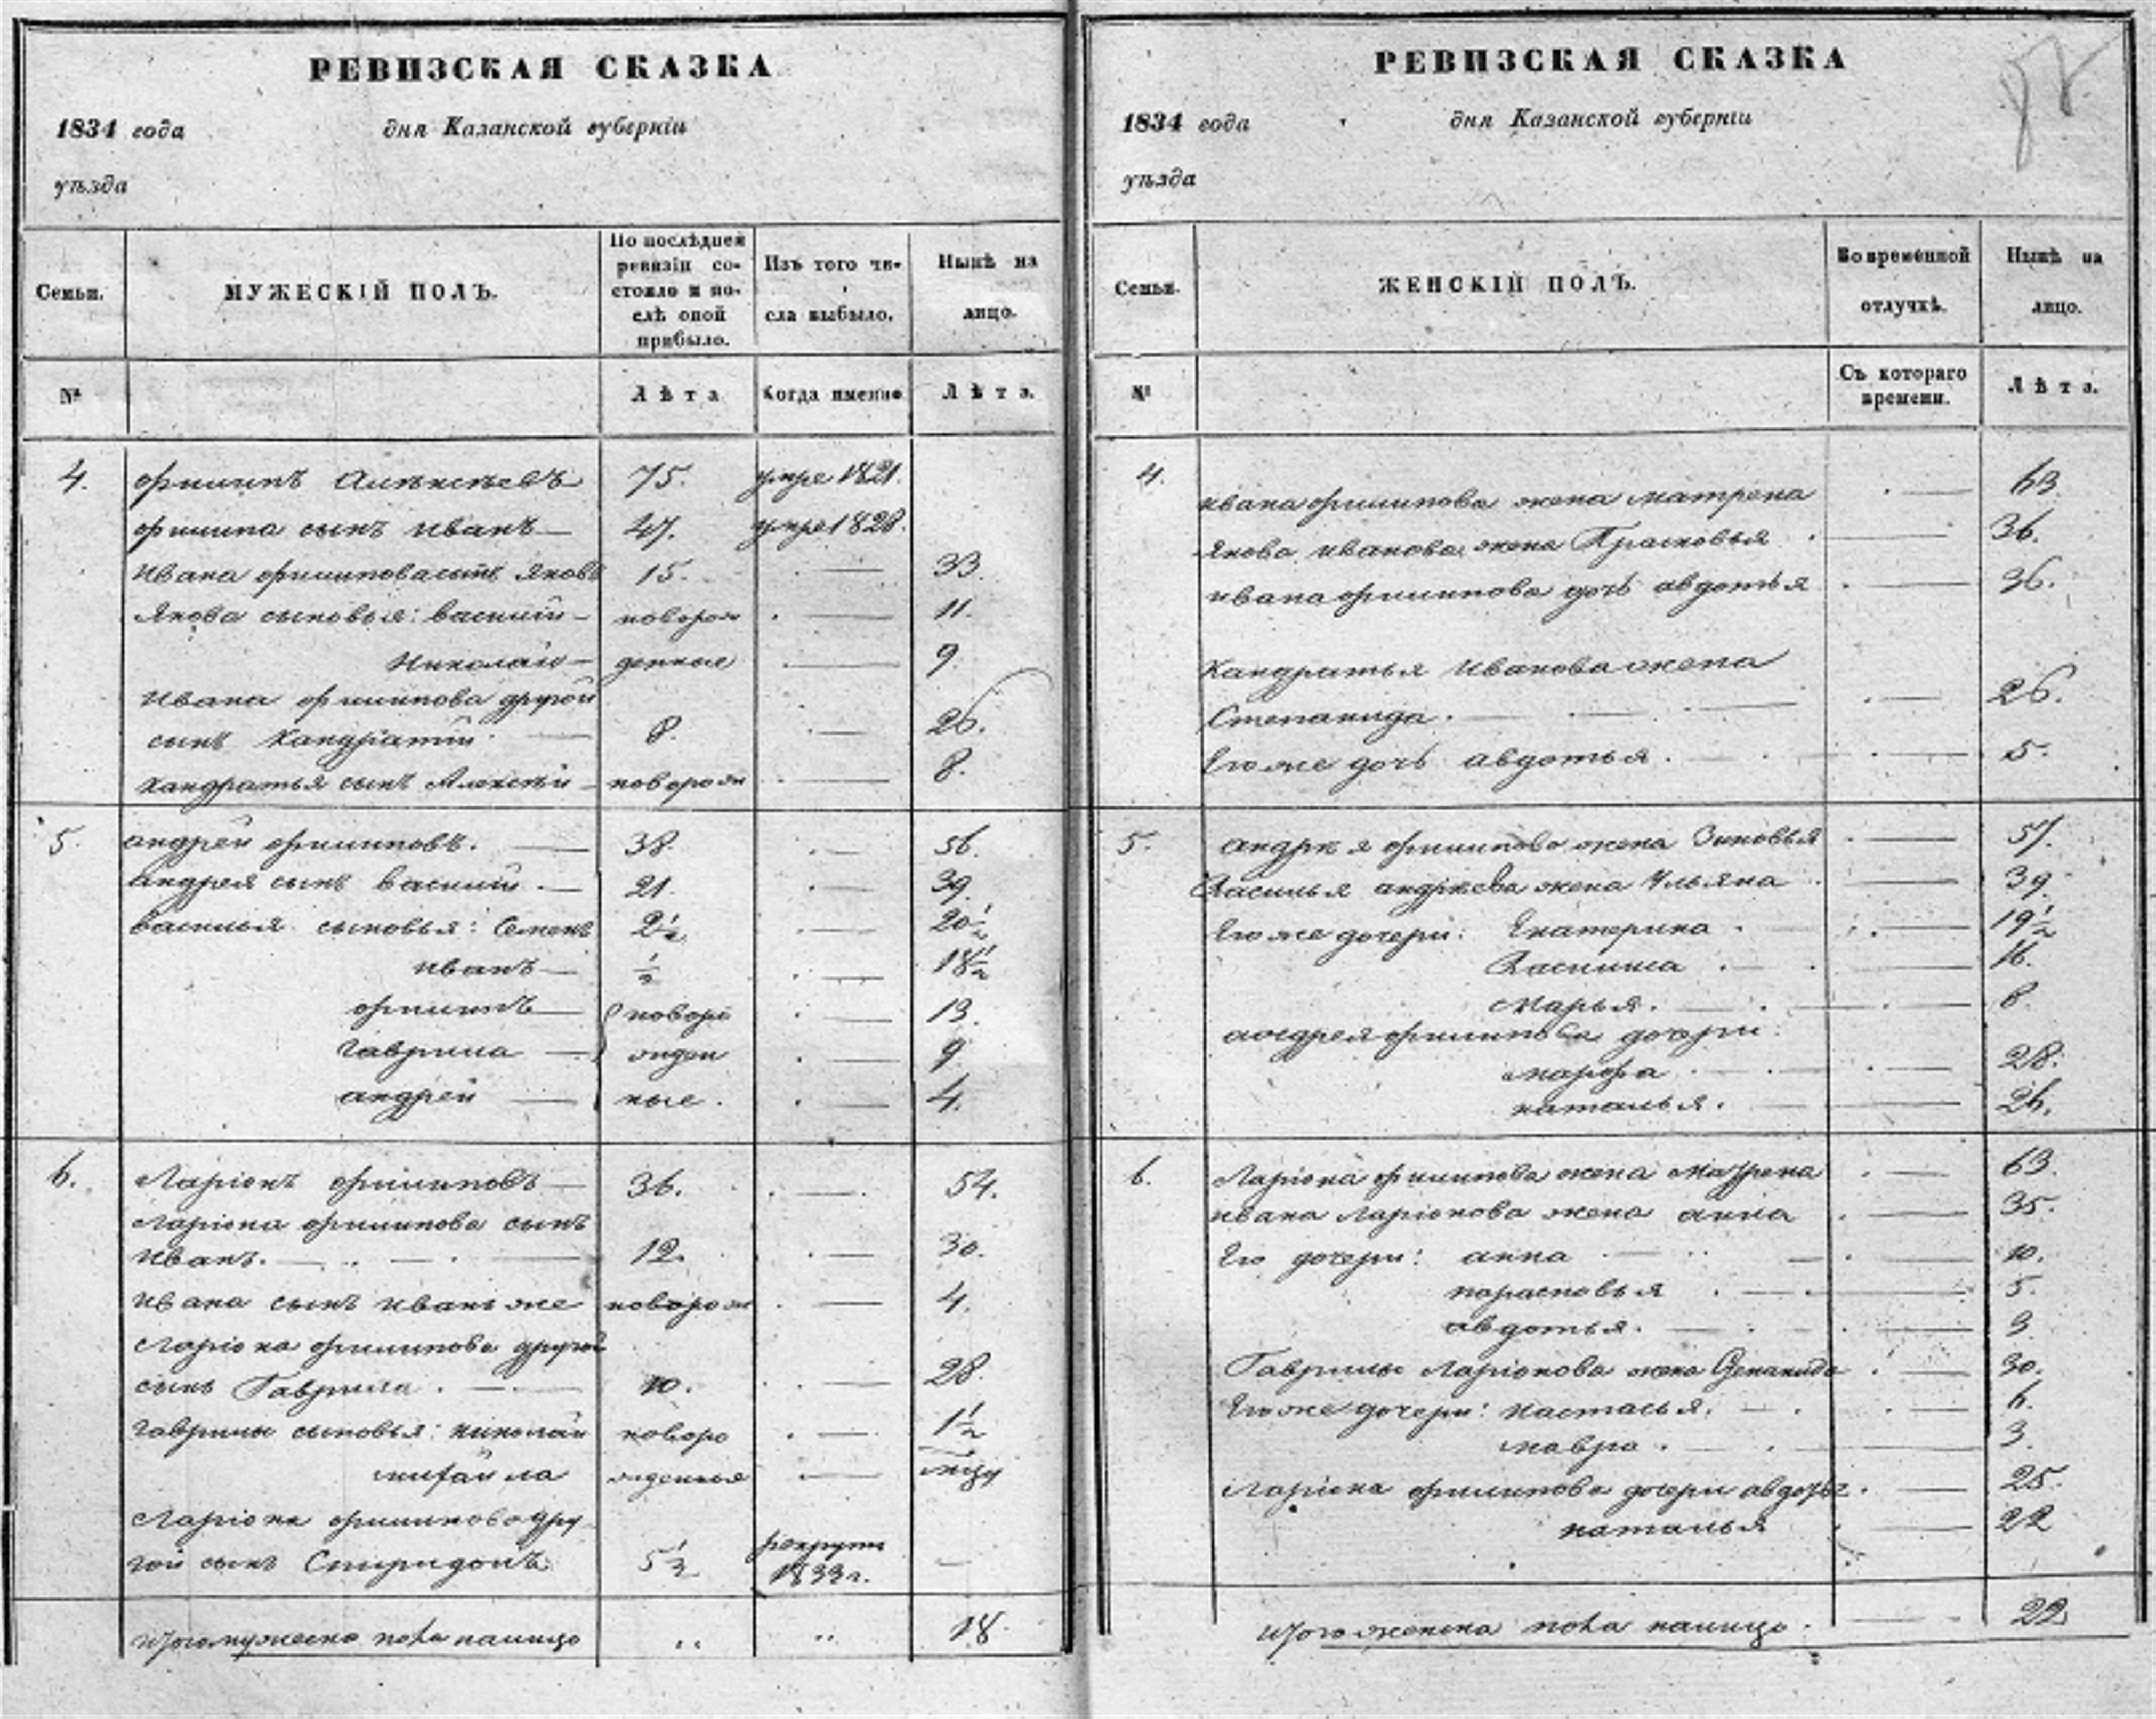 РЕВИЗСКАЯ СКАЗКА
1834 года дня Казанской губерніи
уѣзда
Семьи. МУЖЕСКІЙ ПОЛЪ. По послѣдней ревизіи со- стояло и по- слѣ оной прибыло. Изъ того чи- сла выбыло. Нынѣ на лицо.
№ Лѣта Когда именно Лѣта.
4. Филипъ Алѣксѣевъ 75. умре 1821.
Филипа сынъ Иванъ 47. умре 1828.
Ивана Филипова сынъ Яковъ 15. 33.
Якова сыновья: Василий новорож 11.
Николай денные 9.
Ивана Филипова другой
сынъ Кандратий 8. 26.
Кандратья сынъ Алексѣй новорож 8.
5. Андрей Филиповъ. 38. 56.
Андрея сынъ Василий. 21. 39.
Василья сыновья: Семенъ 2½ 20½
Иванъ ½ 18½
Филипъ новоро 13.
Гаврила жден 9.
Андрей ные. 4.
6. Ларіонъ Филиповъ 36. 54.
Ларіона Филипова сынъ
Иванъ. 12. 30.
Ивана сынъ Иванъ же новорож 4.
Ларіона Филипова другой
сынъ Гаврила. 10. 28.
Гаврилы сыновья: Николай новоро 1½
Михайла жденныя
Ларіона Филипова дру
гой сынъ Спиридонъ 5½ рекрутъ 1833 г.
Итого мужеска пола налицо 18.
РЕВИЗСКАЯ СКАЗКА
1834 года дня Казанской губерніи
уѣзда
Семьи. ЖЕНСКІЙ ПОЛЪ. Во временной отлучкѣ. Нынѣ на лицо.
№ Съ котораго времени. Лѣта.
4. Ивана Филипова жена Матрена 63.
Якова Иванова жена Прасковья 36.
Ивана Филипова дочь Авдотья 36.
Кандратья Иванова жена
Степанида. 26.
Его же дочь Авдотья. 5.
5. Андрѣя Филипова жена Зиновья 57.
Василья Андрѣева жена Ульяна 39.
Его же дочери: Екатерина 19½
Василиса 16.
Марья. 8.
Андрея Филипова дочери:
Марфа 28.
Наталья. 26.
6. Ларіона Филипова жена Матрена 63.
Ивана Ларіонова жена Анна 35.
Его дочери: Анна 10.
Парасковья 5.
Авдотья. 3.
Гаврилы Ларіонова жена 30.
Его же дочери: Настасья. 6.
Мавра. 3.
Ларіона Филипова дочери Авдотья. 25.
Наталья 22
Итого женска пола налицо. 22